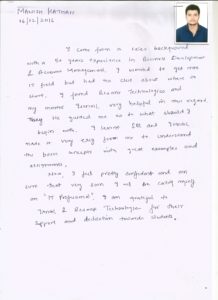 MANISH KATWAH
16/02/2016
I come from a sales background
with a 3+ years experience in Business Development
& Business Management, I wanted to get into
IT field but had no clue about where to
start, I found Technologies and
my mentor very helpful in this regard.
They He guided me as to what should I
begin with. I learnt and
made it very easy for me to understand
the basic concepts with great examples and
assignments.
Now, I feel pretty confident and am
sure that very soon I will be calling myself
an "IT Professional". I am grateful to
& Technologies for their
support and dedication towards students.